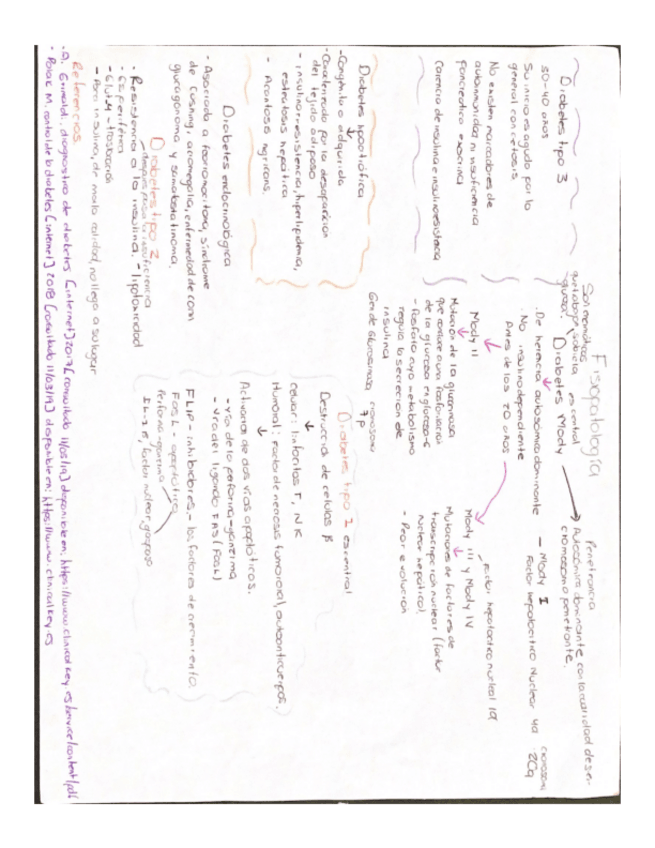 Fisiopatología
Diabetes tipo 3
30-40 años
Su inicio es agudo por lo
general con cetosis
No existen marcadores de
autoinmunidad ni insuficiencia
pancreatica exocrina
Carencia de insulina e insulinoresistencia
Diabetes lipoatrófica
- Congénita o adquirida
- Caracterizada por la desaparición
del tejido adiposo
- insulinorresistencia, hiperlipidemia,
esteatosis hepática
- Acantosis nigricans.
Diabetes endocrinológica
- Asociada a feocromocitoma, síndrome
de Cushing, acromegalia, enfermedad de Conn
glucagonoma y somatostatinoma.
Diabetes tipo 2
después pasa la insuficiencia
- Resistencia a la insulina. - lipotoxicidad
- Es periférica
- Glut 4 - traslocación
- Pero insulina, de mala calidad, no llega a su lugar
Son
es central
Diabetes Mody
Penetrancia
Autosómica dominante con la cualidad de ser
cromosoma penetrante.
- De herencia autosómica dominante
- No insulinodependiente
Antes de los 20 años
- Mody I
Factor hepatocitico Nuclear 4a
cromosoma
20q
Mody II
Mutación de la glucocinasa
que conduce a una fosforilación
de la glucosa en glucosa-6
- fosfato cuyo metabolismo
regula la secreción de
insulina
Gen de Glucosinasa cromosoma
7p
Mody III y Mody IV
Factor hepatocitico nuclear 1a
Mutaciones de factores de
transcripción nuclear (factor
nuclear hepático).
- Peor evolución
Diabetes tipo 1 es central
Destrucción de celulas β
celular: linfocitos T, NK
Humoral: factor de necrosis tumoral, autoanticuerpos.
Activación de dos vías apoptóticas.
- vía de la perforina-granzima
- Vía del ligando FAS (FasL)
FLIP - inhibidores - los factores de crecimiento.
FasL - apoptótica
Perforina-granzima
IL-1 β, factor nuclear,
Referencias
- A. Grimaldi, diagnostico de diabetes [internet] 2017 [consultado 11/03/19] disponible en: https://www.clinicalkey.es/service/content/pdf
- Polak M. control de la diabetes [internet] 2018 [consultado 11/03/19] disponible en: https://www.clinicalkey.es